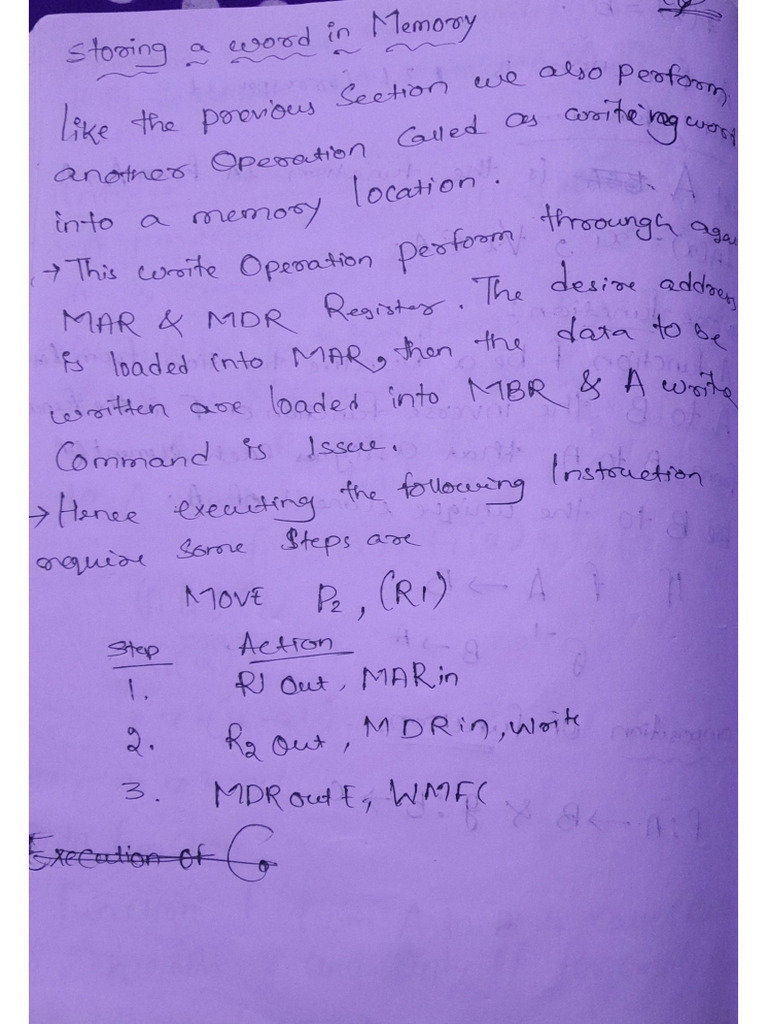 Storing a word in Memory
like the previous Section we also perform
another Operation Called as writeing word
into a memory location.
→ This write Operation perform throough aga
MAR & MDR Register. The desire address
is loaded into MAR, then the data to be
written are loaded into MBR & A write
Command is Issue.
→ Hence executing the following Instruction
require Some Steps are
MOVE P2, (R1)
Step Action
1. R1 Out, MAR in
2. R2 Out, MDR in, Write
3. MDR out E, WMFC
Execution of Co